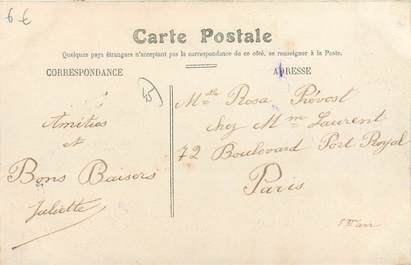 6€
Carte Postale
Quelques pays étrangers n'acceptant pas la correspondance de ce côté, se renseigner à la Poste.
CORRESPONDANCE
ADRESSE
45
Amitiés
et
Bons Baisers
Juliette
Mlle Rosa Prévost
chez Mme Laurent
72 Boulevard Port Royal
Paris